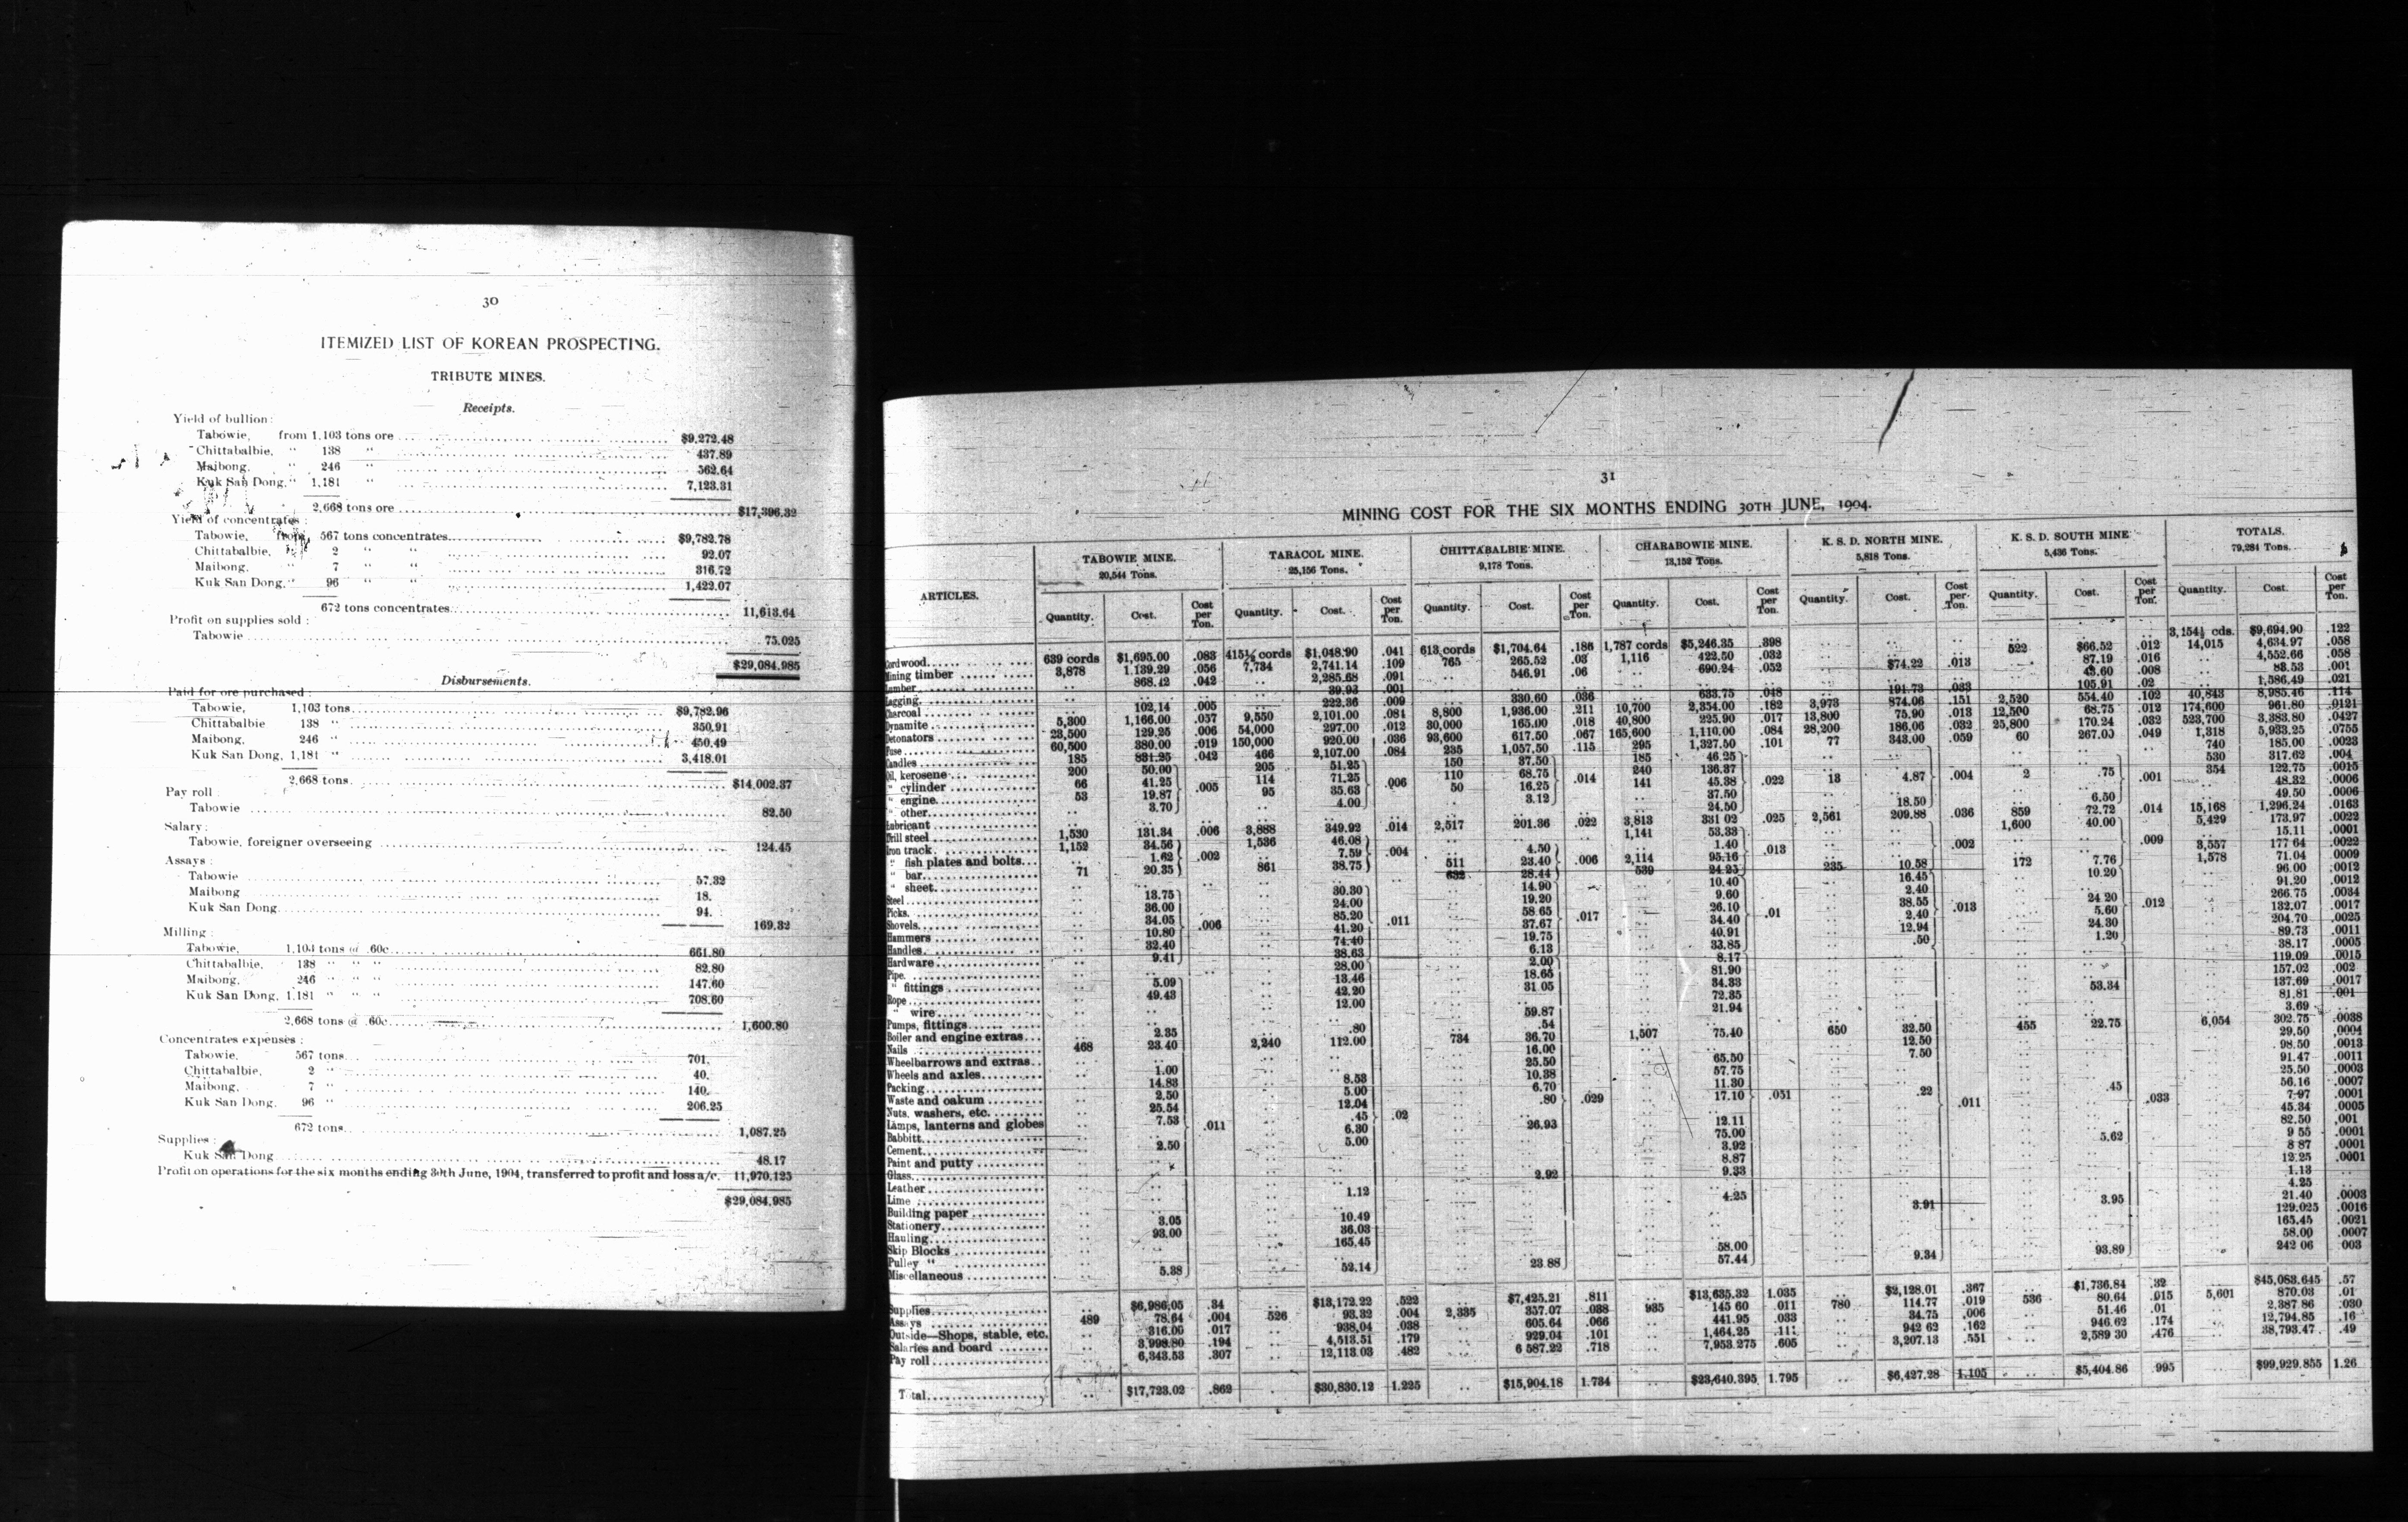 30
ITEMIZED LIST OF KOREAN PROSPECTING.
TRIBUTE MINES.
Receipts.
Yield of bullion:
Tabowie, from 1,103 tons ore $9,272.48
Chittabalbie, " 138 " 437.89
Maibong, " 246 " 562.64
Kuk San Dong, " 1,181 " 7,123.31
2,668 tons ore $17,396.32
Yield of concentrates:
Tabowie, from 567 tons concentrates $9,782.78
Chittabalbie, " 2 " " 92.07
Maibong, " 7 " " 316.72
Kuk San Dong, " 96 " " 1,422.07
672 tons concentrates 11,613.64
Profit on supplies sold:
Tabowie 75.025
$29,084.985
Disbursements.
Paid for ore purchased:
Tabowie, 1,103 tons $9,782.96
Chittabalbie 138 " 350.91
Maibong, 246 " 450.49
Kuk San Dong, 1,181 " 3,418.01
2,668 tons $14,002.37
Pay roll:
Tabowie 82.50
Salary:
Tabowie, foreigner overseeing 124.45
Assays:
Tabowie 57.32
Maibong 18.
Kuk San Dong 94.
169.32
Milling:
Tabowie, 1,103 tons @ .60c 661.80
Chittabalbie, 138 " " " 82.80
Maibong, 246 " " " 147.60
Kuk San Dong, 1,181 " " " 708.60
2,668 tons @ .60c 1,600.80
Concentrates expenses:
Tabowie, 567 tons 701.
Chittabalbie, 2 " 40.
Maibong, 7 " 140.
Kuk San Dong, 96 " 206.25
672 tons 1,087.25
Supplies:
Kuk San Dong 48.17
Profit on operations for the six months ending 30th June, 1904, transferred to profit and loss a/c. 11,970.125
$29,084.985
31
MINING COST FOR THE SIX MONTHS ENDING 30TH JUNE, 1904.
ARTICLES. TABOWIE MINE. TARACOL MINE. CHITTABALBIE MINE. CHARABOWIE MINE. K. S. D. NORTH MINE. K. S. D. SOUTH MINE TOTALS.
20,544 Tons. 25,156 Tons. 9,178 Tons. 13,152 Tons. 5,818 Tons. 5,436 Tons. 79,284 Tons.
Quantity. Cost. Cost per Ton. Quantity. Cost. Cost per Ton. Quantity. Cost. Cost per Ton. Quantity. Cost. Cost per Ton. Quantity. Cost. Cost per Ton. Quantity. Cost. Cost per Ton. Quantity. Cost. Cost per Ton.
Cordwood 639 cords $1,695.00 .083 415½ cords $1,048.90 .041 613 cords $1,704.64 .186 1,787 cords $5,246.35 .398 3,154½ cds. $9,694.90 .122
Mining timber 3,878 1,139.29 .056 7,734 2,741.14 .109 765 265.52 .03 1,116 422.50 .032 522 $66.52 .012 14,015 4,634.97 .058
Lumber 868.42 .042 2,285.68 .091 546.91 .06 690.24 .052 $74.22 .013 87.19 .016 4,552.66 .058
Lagging 39.93 .001 43.60 .008 83.53 .001
Charcoal 102.14 .005 222.36 .009 330.60 .036 633.75 .048 191.73 .033 105.91 .02 1,586.49 .021
Dynamite 5,300 1,166.00 .057 9,550 2,101.00 .084 8,800 1,936.00 .211 10,700 2,354.00 .182 3,973 874.06 .151 2,520 554.40 .102 40,843 8,985.46 .114
Detonators 23,500 129.25 .006 54,000 297.00 .012 30,000 165.00 .018 40,800 225.90 .017 13,800 75.90 .013 12,500 68.75 .012 174,600 961.80 .0121
Fuse 60,500 380.00 .019 150,000 920.00 .036 93,600 617.50 .067 165,600 1,110.00 .084 28,200 186.06 .032 25,800 170.24 .032 523,700 3,383.80 .0427
Candles 185 831.25 .042 466 2,107.00 .084 235 1,057.50 .115 295 1,327.50 .101 77 343.00 .059 60 267.00 .049 1,318 5,933.25 .0755
Oil, kerosene 200 50.00 205 51.25 150 37.50 185 46.25 740 185.00 .0023
" cylinder 66 41.25 .005 114 71.25 .006 110 68.75 .014 240 136.37 .022 530 317.62 .004
" engine 53 19.87 95 35.63 50 16.25 141 45.38 13 4.87 .004 2 .75 .001 354 122.75 .0015
" other 3.70 4.00 3.12 37.50 48.32 .0006
Lubricant 24.50 18.50 6.50 49.50 .0006
Drill steel 1,530 131.34 .006 3,888 349.92 .014 2,517 201.36 .022 3,813 331 02 .025 2,561 209.88 .036 859 72.72 .014 15,168 1,296.24 .0163
Iron track 1,152 34.56 1,536 46.08 1,141 53.33 1,600 40.00 5,429 173.97 .0022
" fish plates and bolts 1.62 .002 7.59 .004 4.50 1.40 .013 .002 .009 15.11 .0001
" bar 71 20.35 861 38.75 511 23.40 .006 2,114 95.16 3,557 177 64 .0022
" sheet 632 28.44 539 24.25 235 10.58 172 7.76 1,578 71.04 .0009
Steel 13.75 30.30 14.90 10.40 16.45 10.20 96.00 .0012
Picks 36.00 24.00 19.20 9.60 2.40 91.20 .0012
Shovels 34.05 .006 85.20 .011 58.65 .017 26.10 .01 38.55 .013 24 20 .012 266.75 .0034
Hammers 10.80 41.20 37.67 34.40 2.40 5.60 132.07 .0017
Handles 32.40 74.40 19.75 40.91 12.94 24.30 204.70 .0025
Hardware 9.41 38.63 6.13 33.85 .50 1.20 89.73 .0011
Pipe 28.00 2.00 8.17 38.17 .0005
" fittings 5.09 13.46 18.65 81.90 119.09 .0015
Rope 49.43 42.20 31 05 34.33 157.02 .002
" wire 12.00 72.35 53.34 137.69 .0017
Pumps, fittings 59.87 21.94 81.81 .001
Boiler and engine extras 2.35 .80 .54 3.69
Nails 468 23.40 2,240 112.00 734 36.70 1,507 75.40 650 32.50 455 22.75 6,054 302.75 .0038
Wheelbarrows and extras 1.00 16.00 12.50 29.50 .0004
Wheels and axles 25.50 65.50 7.50 98.50 .0013
Packing 14.83 8.53 10.38 57.75 91.47 .0011
Waste and oakum 2.50 5.00 6.70 11.30 25.50 .0003
Nuts, washers, etc. 25.54 12.04 .80 .029 17.10 .051 .22 .45 56.16 .0007
Lamps, lanterns and globes 7.53 .011 .45 .02 .011 .033 7.97 .0001
Babbitt 6.30 26.93 12.11 45.34 .0005
Cement 2.50 5.00 75.00 82.50 .001
Paint and putty 3.92 5.62 9 55 .0001
Glass 8.87 8 87 .0001
Leather 2.92 9.33 12.25 .0001
Lime 1.12 1.13
Building paper 4.25 4.25
Stationery 3.05 10.49 3.91 3.95 21.40 .0003
Hauling 93.00 36.03 129.025 .0016
Skip Blocks 165.45 165.45 .0021
Pulley " 58.00 58.00 .0007
Miscellaneous 5.38 52.14 23.88 57.44 9.34 93.89 242 06 003
Supplies $6,986.05 .34 $13,172.22 .522 $7,425.21 .811 $13,635.32 1.035 $2,128.01 .367 $1,736.84 .32 $45,083.645 .57
Assays 489 78.64 .004 526 93.32 .004 2,335 357.07 .038 935 145 60 .011 780 114.77 .019 536 80.64 .015 5,601 870.03 .01
Outside—Shops, stable, etc. 316.00 .017 938.04 .038 605.64 .066 441.95 .033 34.75 .006 51.46 .01 2,387.86 .030
Salaries and board 3,998.80 .194 4,513.51 .179 929.04 .101 1,464.25 .111 942 62 .162 946.62 .174 12,794.85 .16
Pay roll 6,343.53 .307 12,113.03 .482 6 587.22 .718 7,953.275 .605 3,207.13 .551 2,589 30 .476 38,793.47 .49
Total $17,723.02 .862 $30,830.12 1.225 $15,904.18 1.734 $23,640.395 1.795 $6,427.28 1.105 $5,404.86 .995 $99,929.855 1.26